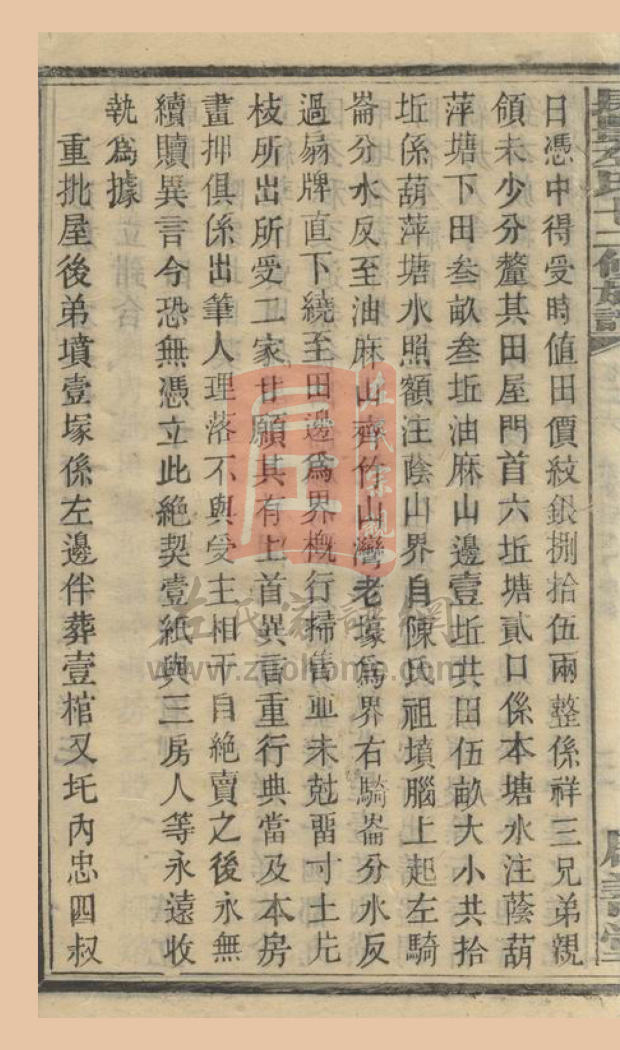 日憑中得受時值田價紋銀捌拾伍兩整係祥三兄弟親
領未少分釐其田屋門首六坵塘貳口係本塘水注蔭葫
萍塘下田叁畝叁坵油麻山邊壹坵共田伍畝大小共拾
坵係葫萍塘水照額注蔭山界自陳氏祖墳腦上起左騎
崙分水反至油麻山齊竹山灣老壕為界右騎崙分水反
過扇牌直下繞至田邊為界概行掃售並未尅畱寸土片
枝所出所受二家甘願其有上首異言重行典當及本房
畫押俱係出筆人理落不與受主相干自絕賣之後永無
續贖異言今恐無憑立此絕契壹紙與三房人等永遠收
執為據
重批屋後弟墳壹塚係左邊伴葬壹棺又圫內忠四叔
左氏宗親
左氏家譜網
www.zuohome.com